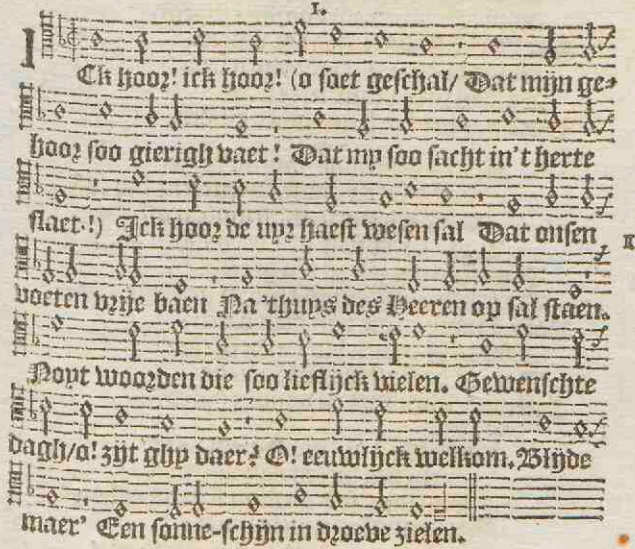 1.
ICk hoor! ick hoor! (o soet geschal/ Dat mijn ge-
hoor soo gierigh vaet! Dat my soo sacht in't herte
slaet.!) Ick hoor de uyr haest wesen sal Dat onsen
voeten vrije baen Na 'thuys des Heeren op sal staen.
Noyt woorden die soo lieflijck vielen. Gewenschte
dagh/o! zijt ghy daer? O! eeuwlijck welkom. Blijde
maer' Een sonne-schijn in droeve zielen.